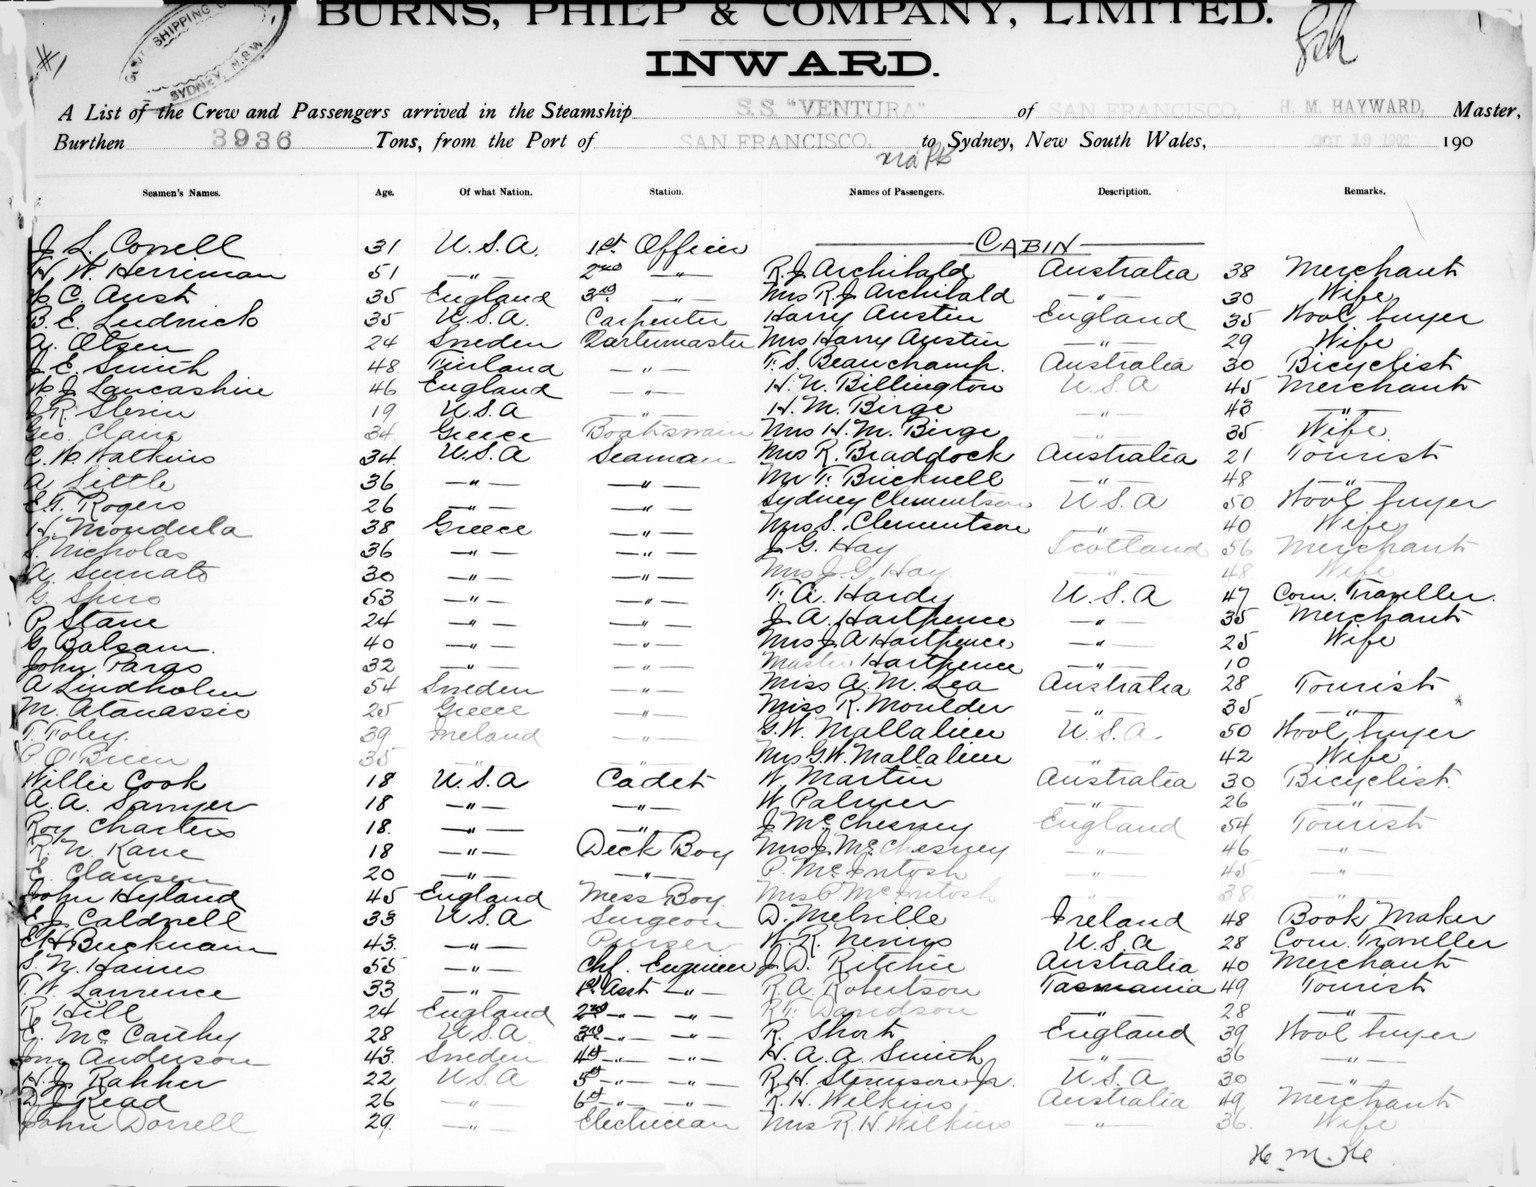 BURNS, PHILP & COMPANY, LIMITED.
#1
SHIPPING
SYDNEY, N.S.W.
INWARD.
A List of the Crew and Passengers arrived in the Steamship S.S. "VENTURA" of SAN FRANCISCO, H. M. HAYWARD, Master,
Burthen 3936 Tons, from the Port of SAN FRANCISCO, to Sydney, New South Wales, OCT 19 1902 190
via
Seamen's Names. Age. Of what Nation. Station. Names of Passengers. Description. Remarks.
CABIN
J. L. Correll 31 U.S.A. 1st Officer
H. W. Herriman 51 —"— 2nd —"— R. J. Archibald Australia 38 Merchant
C. Aust 35 England 3rd —"— Mrs R. J. Archibald —"— 30 Wife
B. E. Ludnick 35 U.S.A. Carpenter Harry Austin England 35 Wool buyer
A. Olsen 24 Sweden Qartermaster Mrs Harry Austin —"— 29 Wife
J. E. Smith 48 Finland —"— T. S. Beauchamp. Australia 30 Bicyclist
W. J. Lancashire 46 England —"— H. N. Billington U.S.A 45 Merchant
R. Slevin 19 U.S.A —"— H. M. Birge —"— 43 —"—
Geo. Claire 34 Greece Boatswain Mrs H. M. Birge —"— 35 Wife
C. W. Watkins 34 U.S.A Seaman Mrs R. Braddock Australia 21 Tourist
A. Little 36 —"— —"— Mr T. Bucknell —"— 48 —"—
E. T. Rogers 26 —"— —"— Sydney Clementson U.S.A 50 Wool buyer
H. Mondula 38 Greece —"— Mrs S. Clementson —"— 40 Wife
S. Nicholas 36 —"— —"— J. G. Hay Scotland 56 Merchant
A. Sumato 30 —"— —"— Mrs J. G. Hay —"— 48 Wife
G. Spiro 53 —"— —"— T. A. Hardy U.S.A 47 Com. Traveller.
P. Stane 24 —"— —"— J. A. Hartpence —"— 35 Merchant
G. Balsam. 40 —"— —"— Mrs J. A Hartpence —"— 25 Wife
John Pargo 32 —"— —"— Master Hartpence —"— 10
A Lindholm 54 Sweden —"— Miss A. M. Lea Australia 28 Tourist
M. Atanassio 25 Greece —"— Miss R. Moulder —"— 35 —"—
T. Foley. 39 Ireland —"— G. W. Mallalieu U.S.A. 50 Wool buyer
P. O'Brien 35 —"— —"— Mrs G. W. Mallalieu —"— 42 Wife
Willie Cook 18 U.S.A Cadet W Martin Australia 30 Bicyclist.
A. A. Sawyer 18 —"— —"— W. Palmer —"— 26 —"—
Roy Charters 18. —"— —"— J. McChesney England 54 Tourist
R. N. Kane 18 —"— Deck Boy Mrs J. McChesney —"— 46 —"—
E. Clausen 20 —"— —"— P. McIntosh —"— 45 —"—
John Hyland 45 England Mess Boy. Mrs P. McIntosh —"— 38 —"—
E. J. Caldwell 33 U.S.A Surgeon D. Melville Ireland 48 Book Maker
E. H. Buckman 43. —"— Purser W. R. Nevins U.S.A 28 Com. Traveller
S. N. Haines 55 —"— Chf. Engineer J. D. Ritchie Australia 40 Merchant
T. W. Lawrence 33 —"— 1st Asst —"— R. A. Robertson Tasmania 49 Tourist
R. Hill 24 England 2nd —"— —"— R. T. Davidson —"— 28 —"—
E. McCarthy 28 U.S.A. 3rd —"— —"— R. Short England 39 Wool buyer
Anderson 43. Sweden 4th —"— —"— H. A. A. Smith —"— 36 —"—
H. J. Rahker 22 U.S.A 5th —"— —"— R. H. Stevenson Jr. U.S.A 30 —"—
D J Read 26 —"— 6th —"— —"— R. H. Wilkins Australia 49 Merchant
John Dorrell 29. —"— Electrician Mrs R. H. Wilkins —"— 36. Wife